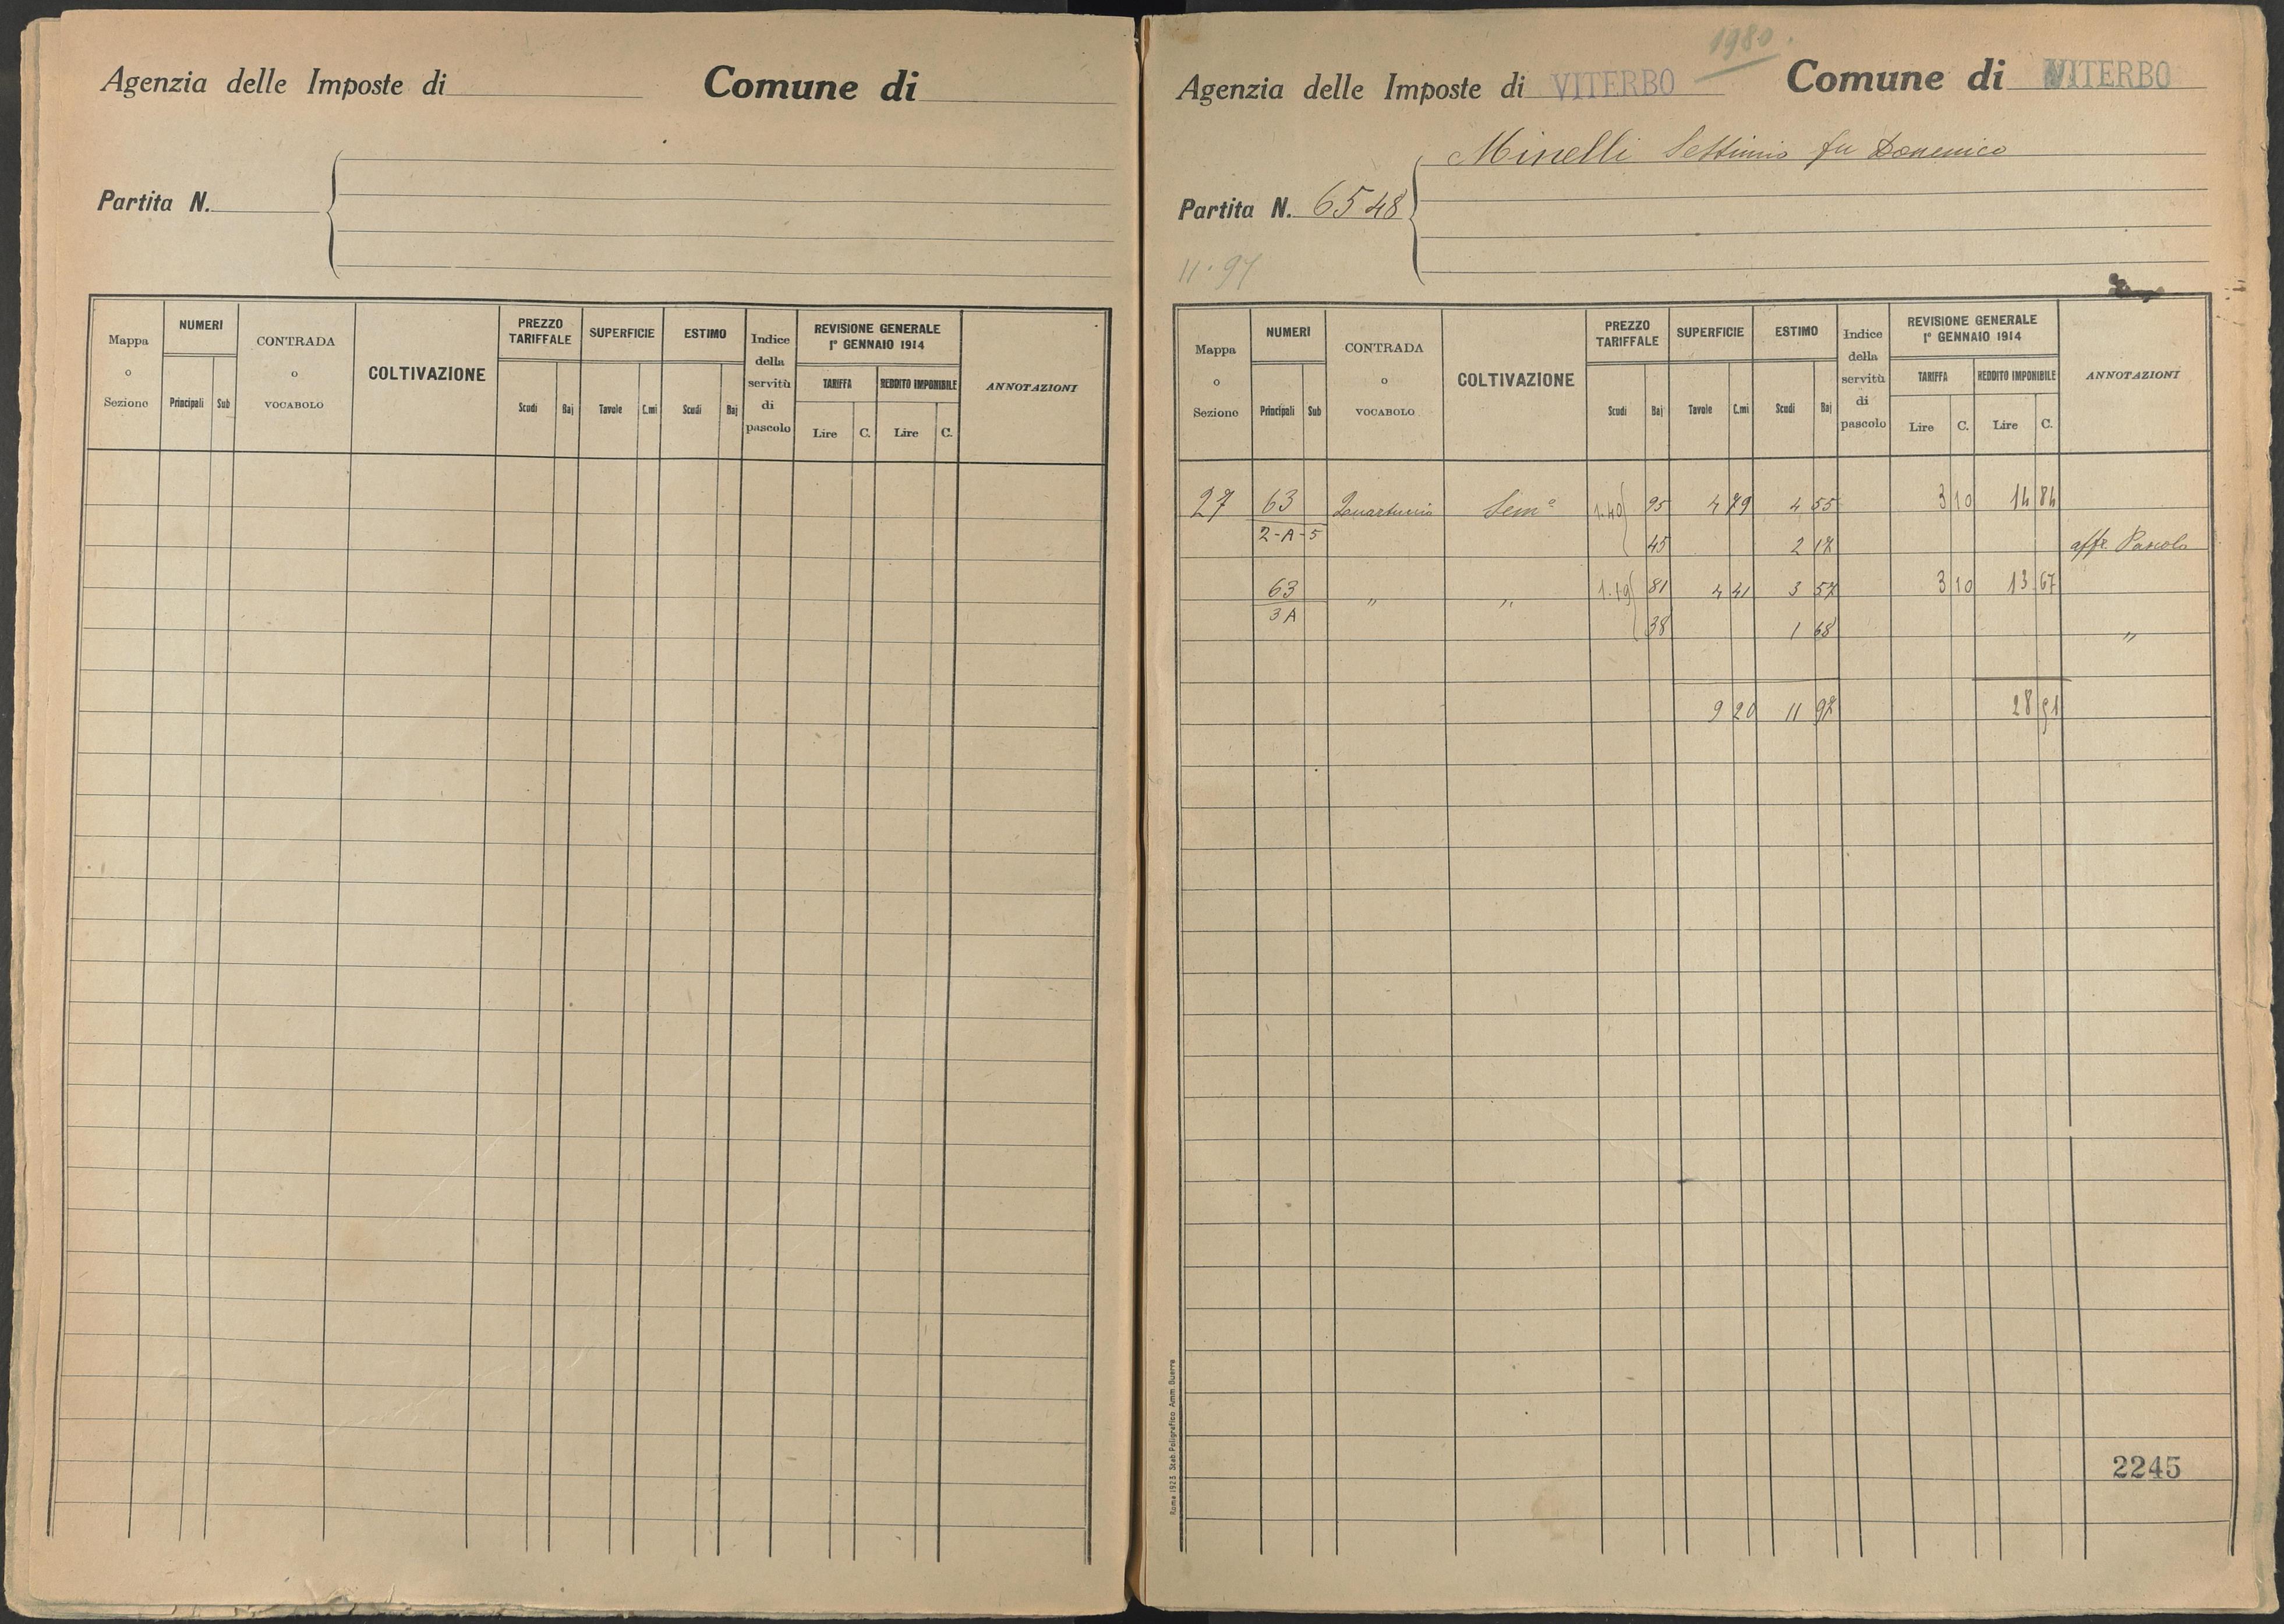 Agenzia delle Imposte di Comune di
Partita N.
Mappa o Sezione NUMERI CONTRADA o VOCABOLO COLTIVAZIONE PREZZO TARIFFALE SUPERFICIE ESTIMO Indice della servitù di pascolo REVISIONE GENERALE 1° GENNAIO 1914 ANNOTAZIONI
TARIFFA REDDITO IMPONIBILE
Principali Sub Scudi Baj Tavole C.mi Scudi Baj Lire C. Lire C.
1980.
Agenzia delle Imposte di VITERBO Comune di VITERBO
Minelli Settimio fu Domenico
Partita N. 6548
11.97
Mappa o Sezione NUMERI CONTRADA o VOCABOLO COLTIVAZIONE PREZZO TARIFFALE SUPERFICIE ESTIMO Indice della servitù di pascolo REVISIONE GENERALE 1° GENNAIO 1914 ANNOTAZIONI
TARIFFA REDDITO IMPONIBILE
Principali Sub Scudi Baj Tavole C.mi Scudi Baj Lire C. Lire C.
27 63 Quartuccio Sem° 1.40 95 4 79 4 55 3 10 14 84
2-A-5 45 2 17 affr. Pascolo
63 " " 1.19 81 4 41 3 57 3 10 13 67
3A 38 1 68 "
9 20 11 97 28 51
2245
Roma 1923 Stab. Poligrafico Amm. Guerra